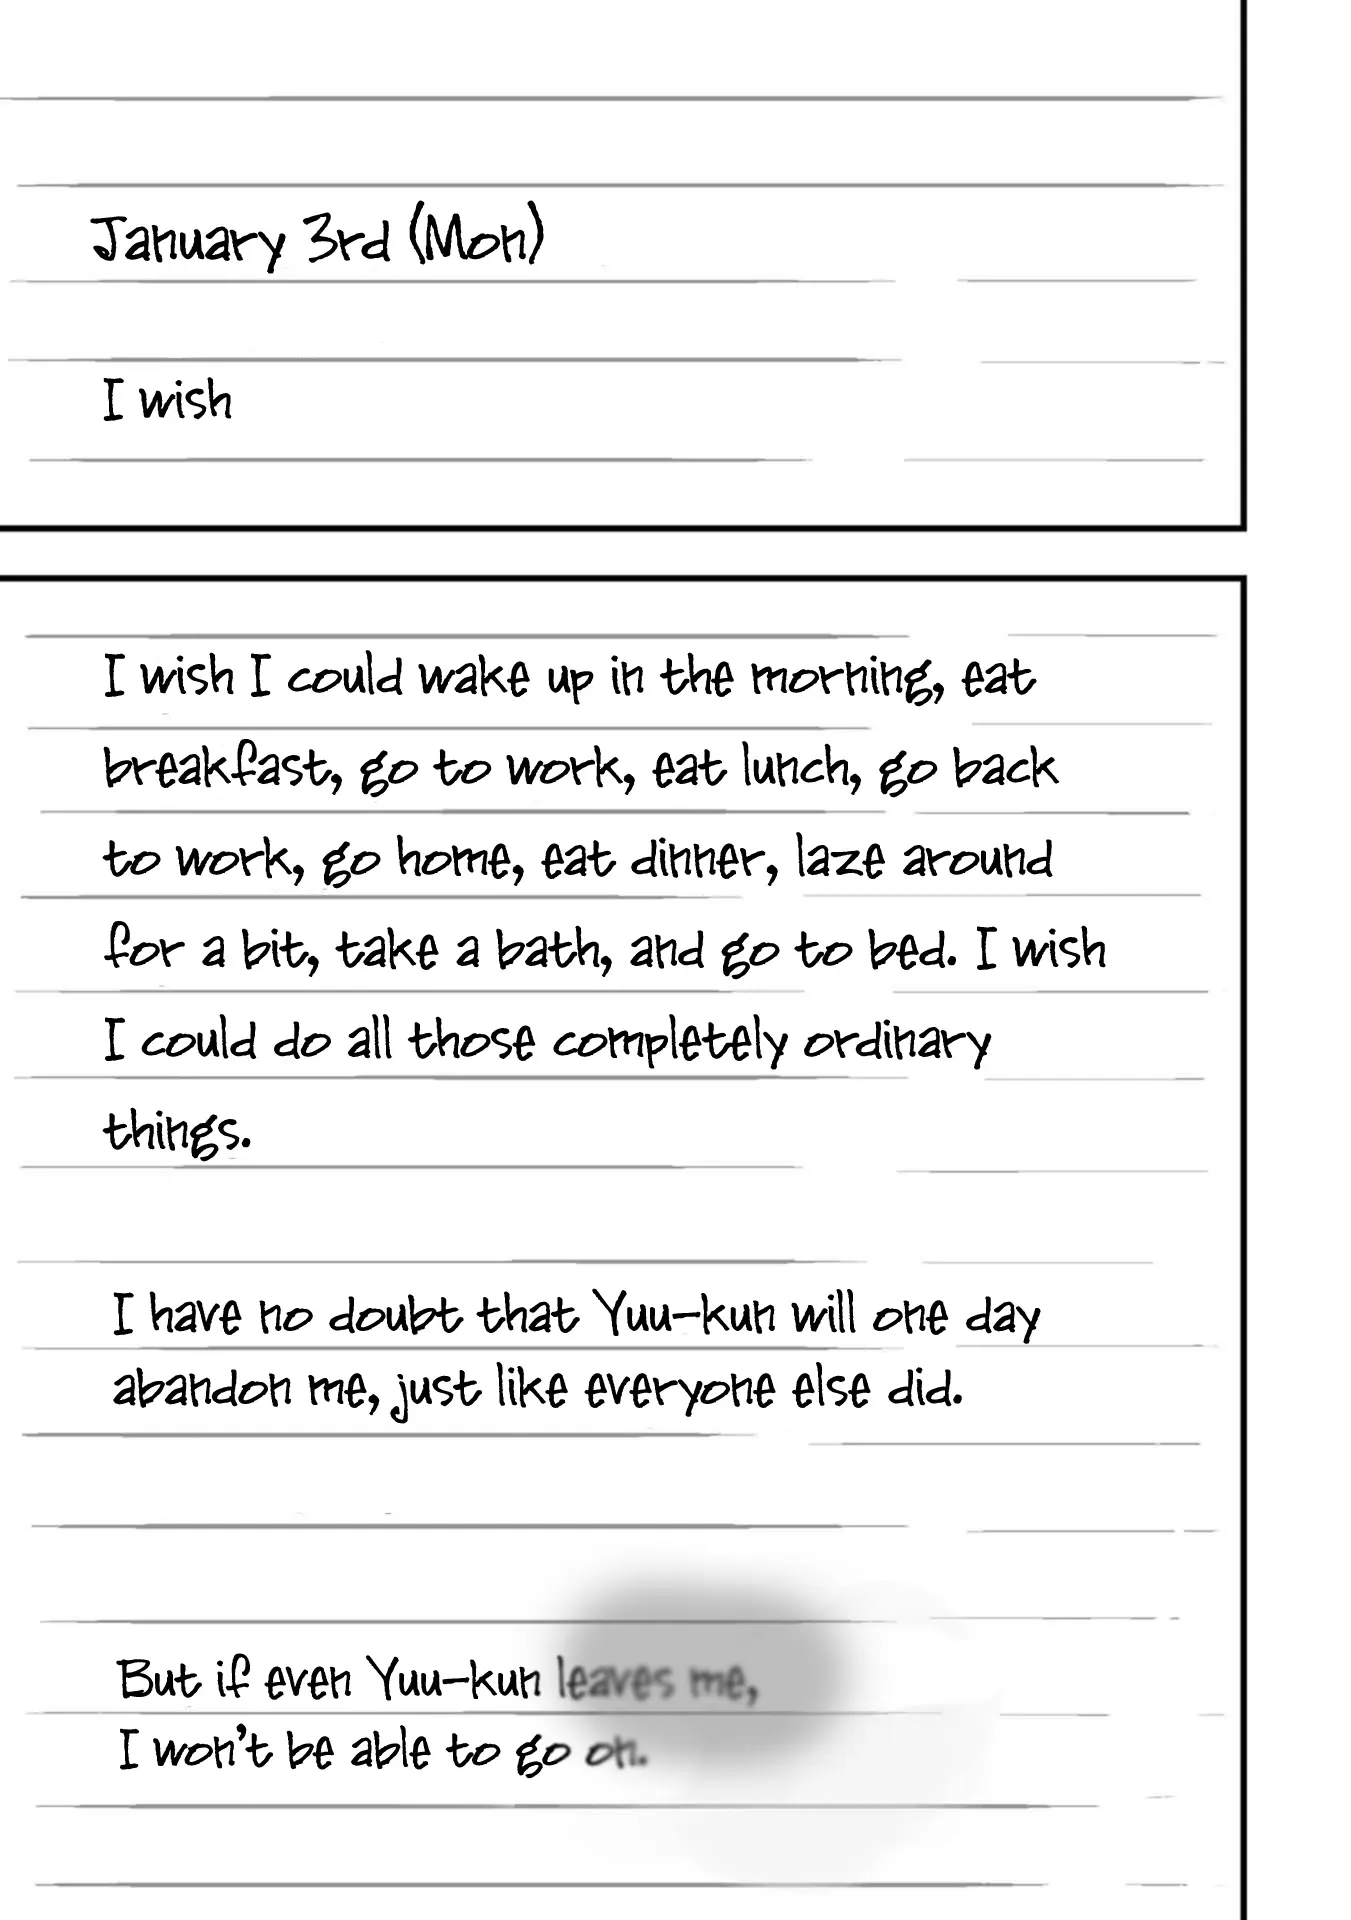 January 3rd (Mon)
I wish
I wish I could wake up in the morning, eat
breakfast, go to work, eat lunch, go back
to work, go home, eat dinner, laze around
for a bit, take a bath, and go to bed. I wish
I could do all those completely ordinary
things.
I have no doubt that Yuu-kun will one day
abandon me, just like everyone else did.
But if even Yuu-kun leaves me,
I won't be able to go on.